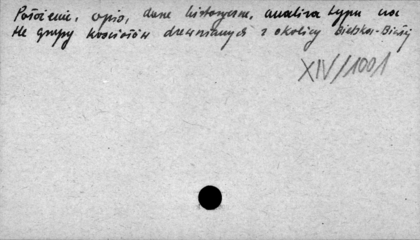 Położenie, opis, dane historyczne, analiza typu na
tle grupy kościołów drewnianych z okolicy Bielska-Białej
XIV/1001